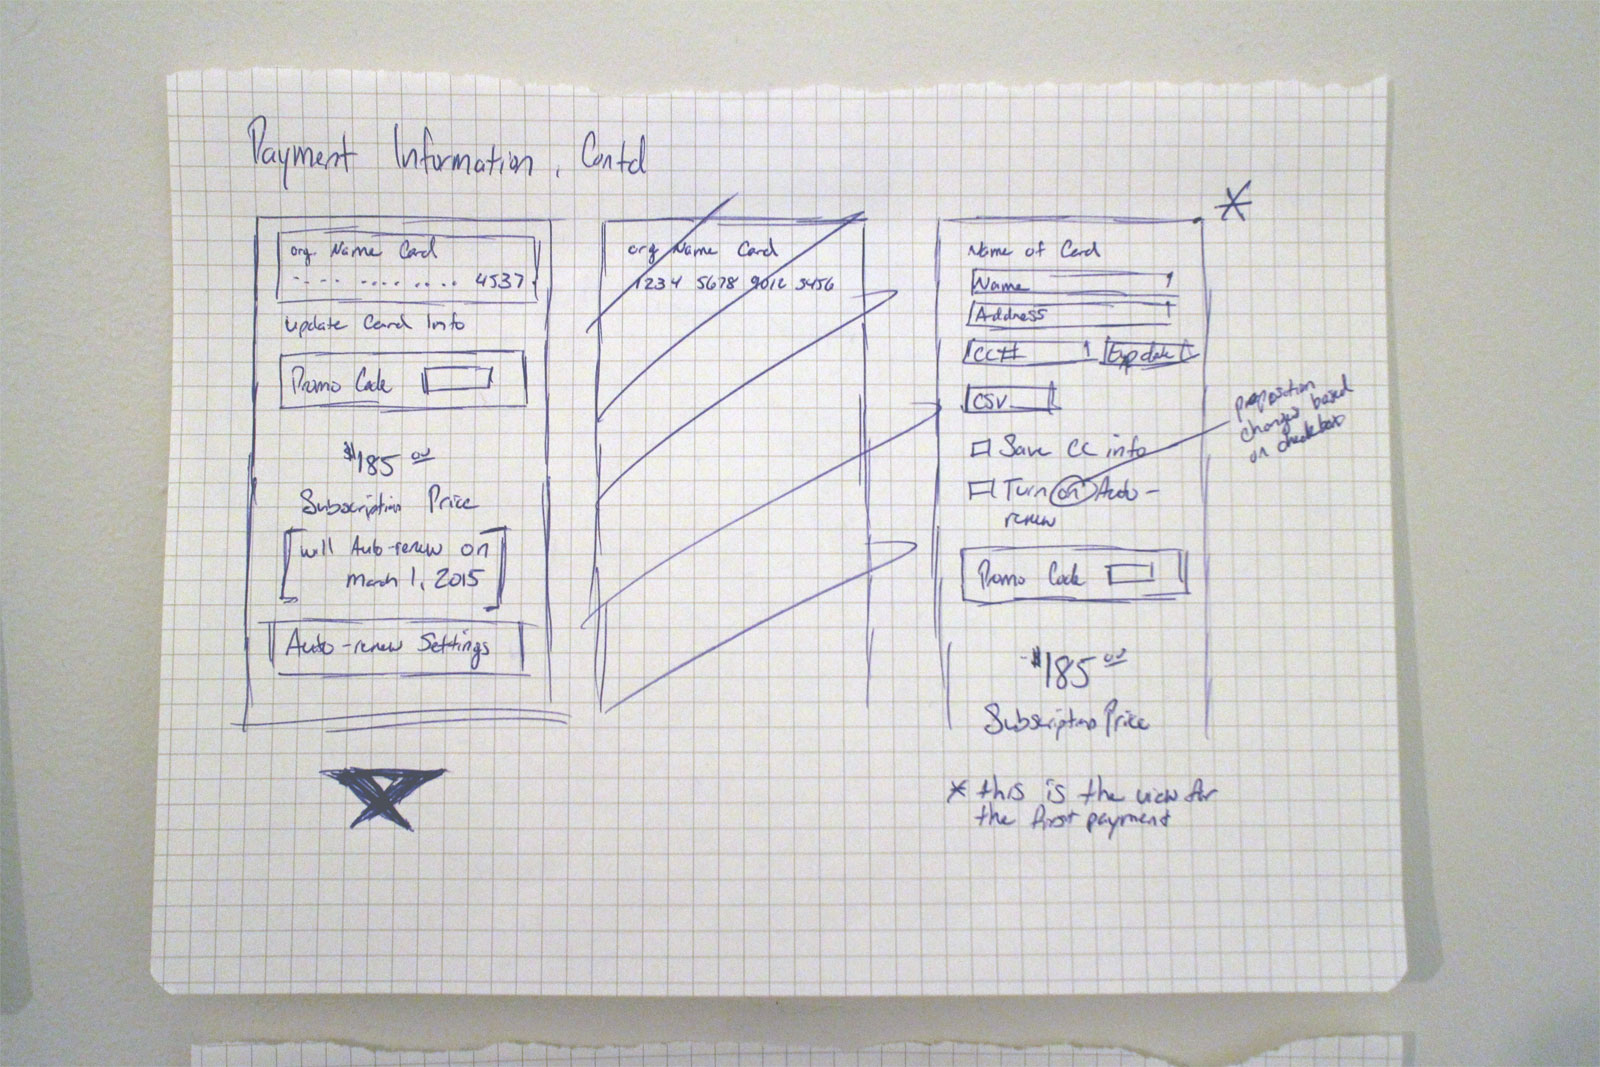 Payment Information, Contd
org. Name Card
.... .... .... 4537
update Card Info
Promo Code
$185 00
Subscription Price
will Auto-renew on
March 1, 2015
Auto-renew Settings
org Name Card
1234 5678 9012 3456
*
Name of Card
Name
Address
CC#
Exp date
CSV
Save CC info
Turn on Auto-
renew
Promo Code
$185 00
Subscription Price
* this is the view for
the first payment
preposition
changes based
on checkbox